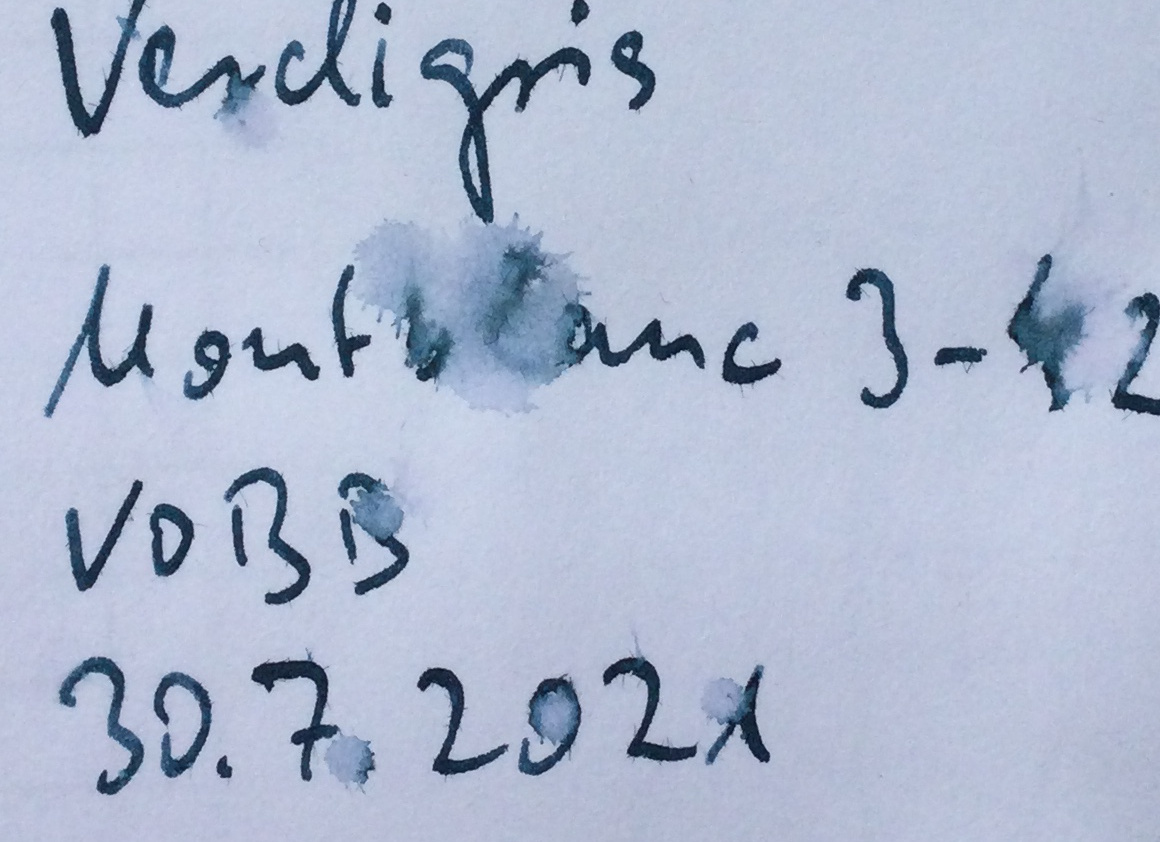 Verdigris
Montblanc 3-42
VOBB
30.7.2021